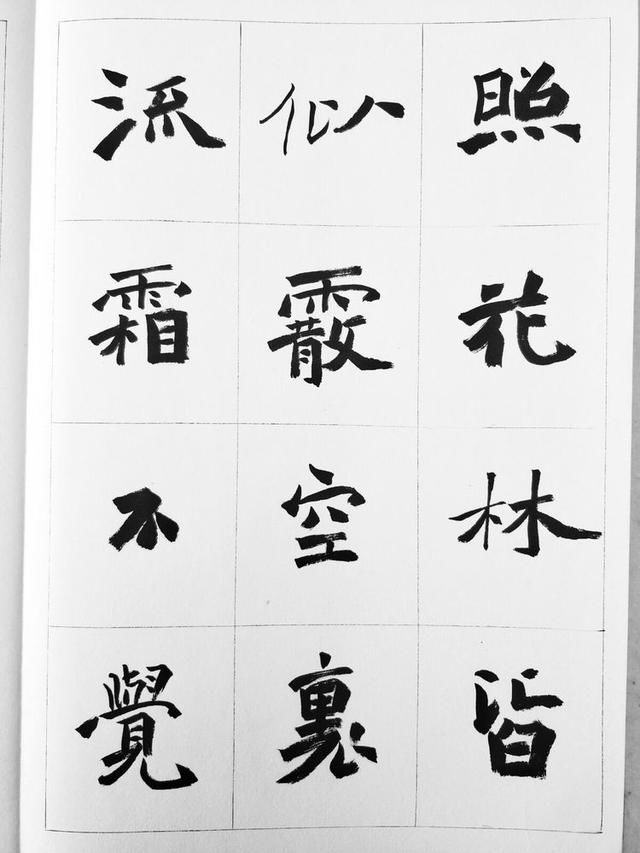 照花林皆
似霰空裏
流霜不覺